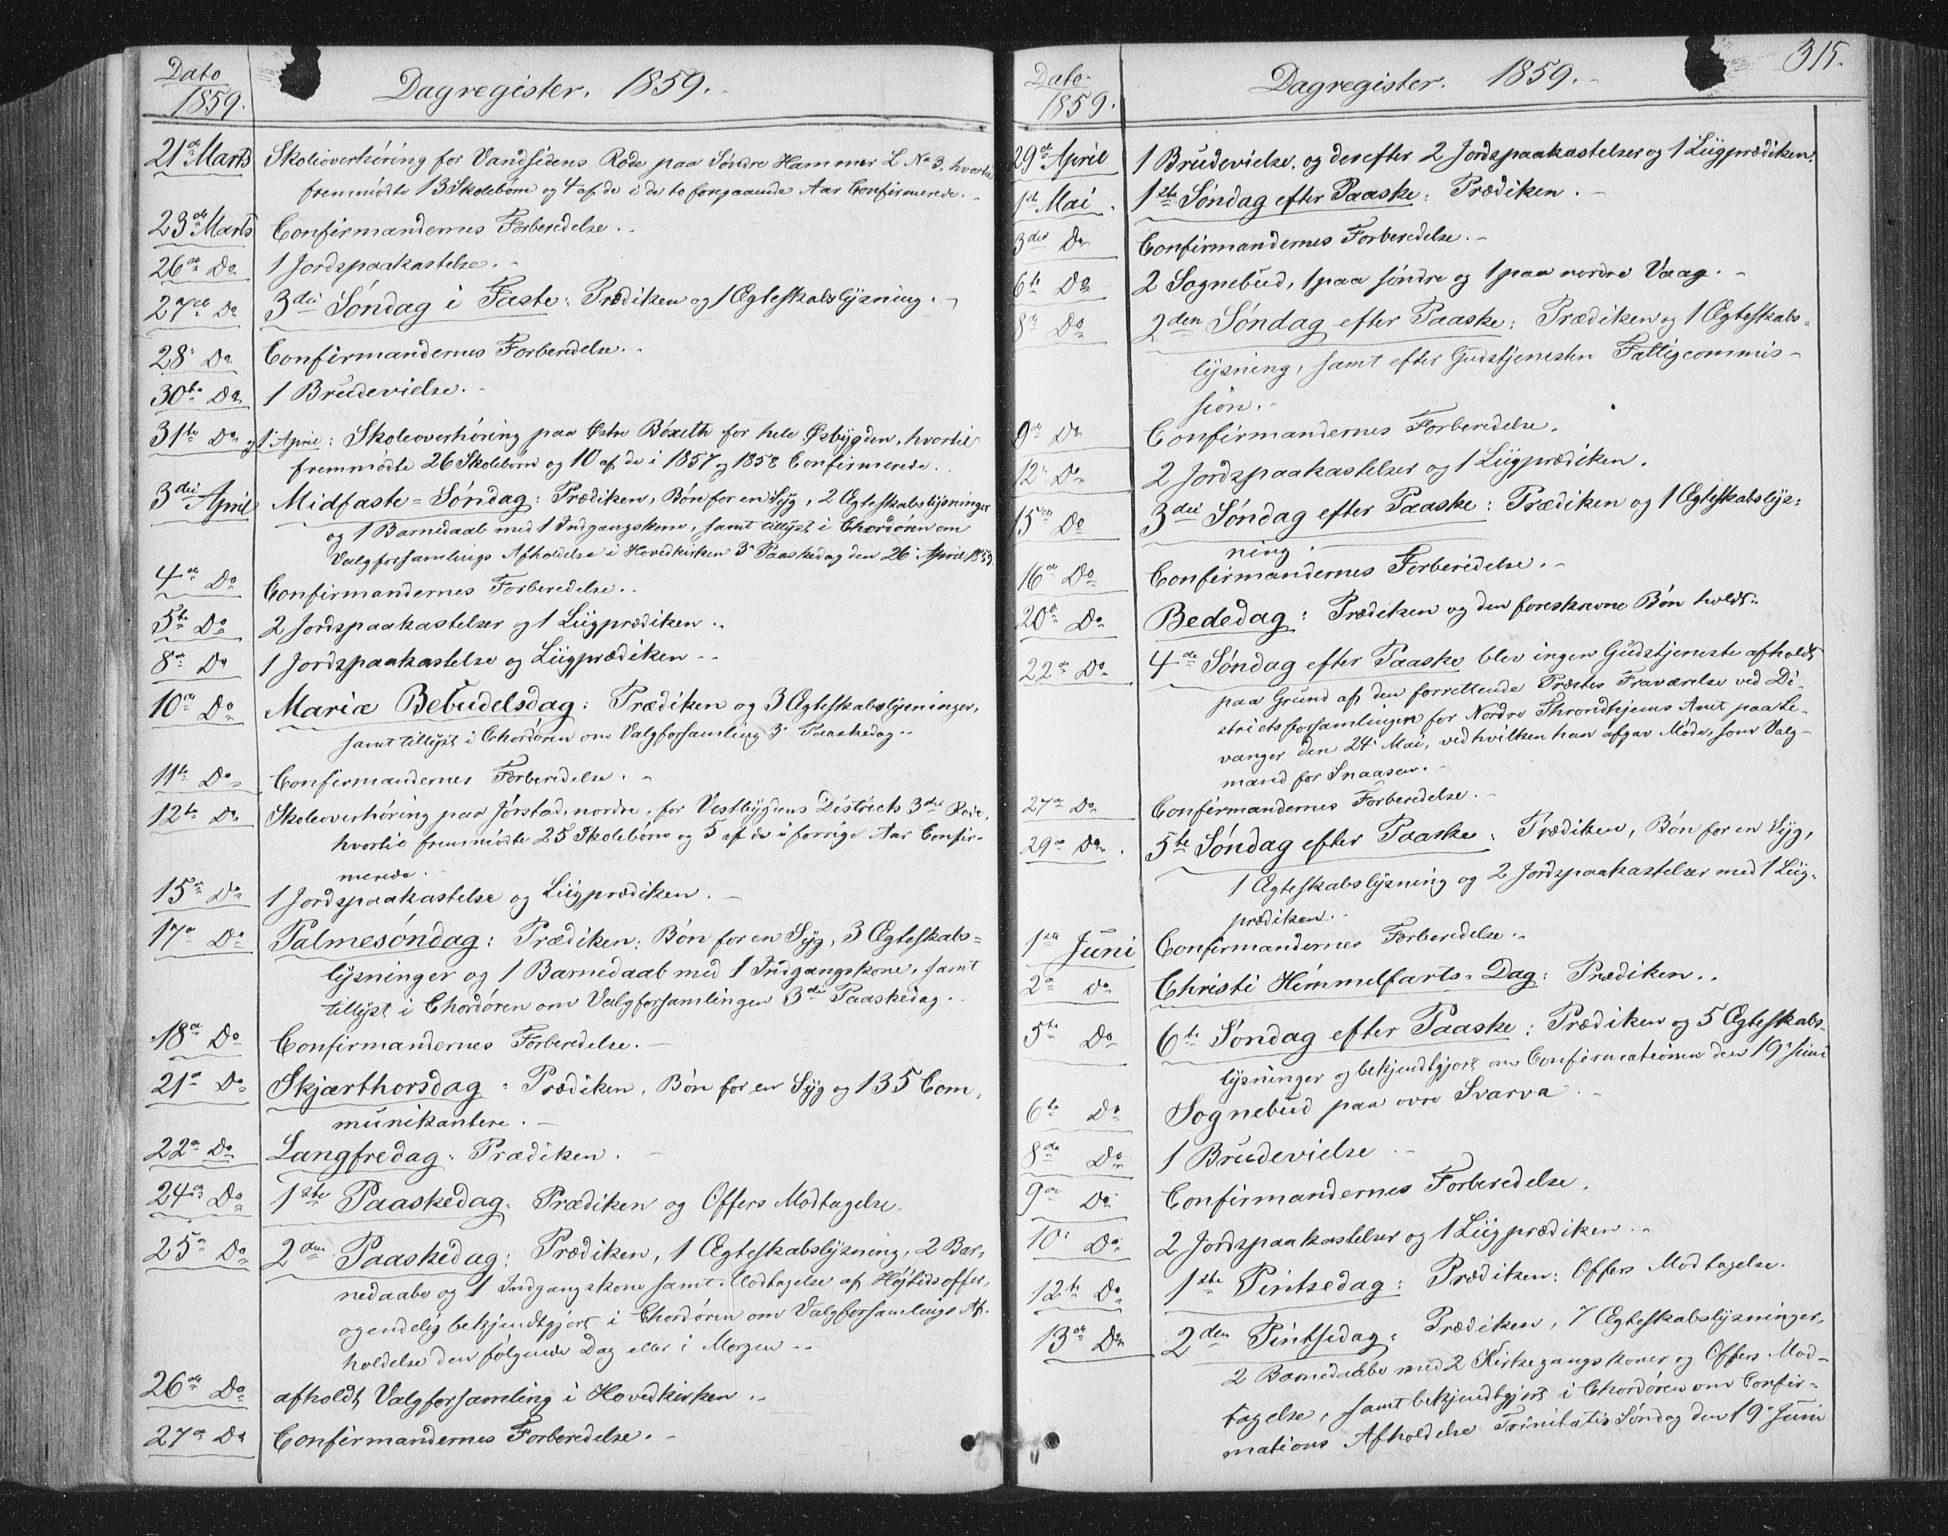 Dato
1859.
Dagregister. 1859.
21de Marts Skoleoverhöring for Vandsidens Rode paa Söndre Hammer L No 3, hvortil
fremmödte 13 Skolebörn og 4 af de i de to foregaaende Aar Confirmerede.
23de Marts Confirmandernes Forberedelse.
26de Do 1 Jordspaakastelse.
27de Do 3die Söndag i Faste: Prædiken og 1 Ægteskabslysning.
28. Do Confirmandernes Forberedelse.
30te Do 1 Brudevielse.
31te Do og 1 April: Skoleoverhöring paa Östre Böxeth for hele Östbygden, hvortil
fremmödte 26 Skolebörn og 10 af de i 1857 og 1858 Confirmerede.
3die April Midfaste-Söndag: Prædiken, Bön for en Syg, 2 Ægteskabslysninger
og 1 Barnedaab med 1 Indgangskone, samt tillyst i Chordören om
Valgforsamlings Afholdelse i Hovedkirken 3. Paaskedag den 26. April 1859.
4de Do Confirmandernes Forberedelse.
5te Do 2 Jordspaakastelser og 1 Liigprædiken.
8de Do 1 Jordspaakastelse og Liigprædiken.
10de Do Mariæ Bebudelsdag: Prædiken og 3 Ægteskabslysninger,
samt tillyst i Chordören om Valgforsamling 3. Paaskedag.
11te Do Confirmandernes Forberedelse.
12te Do Skoleoverhöring paa Jörstad, nordre, for Vestbygdens Districts 3die Rode,
hvortil fremmödte 25 Skolebörn og 5 af de i forrige Aar Confir-
merede.
15de Do 1 Jordspaakastelse og Liigprædiken.
17de Do Palmesöndag: Prædiken, Bön for en Syg, 3 Ægteskabs-
lysninger og 1 Barnedaab med 1 Indgangskone, samt
tillyst i Chordören om Valgforsamlingen 3die Paaskedag.
18de Do Confirmandernes Forberedelse.
21de Do Skjærthorsdag: Prædiken, Bön for en Syg og 135 Com-
munikantere.
22de Do Langfredag: Prædiken.
24de Do 1ste Paaskedag: Prædiken og Offers Modtagelse.
25de Do 2den Paaskedag: Prædiken, 1 Ægteskabslysning, 2 Bar-
nedaabe og 1 Indgangskone samt Modtagelse af Höytids offer,
og endelig bekjendtgjort i Chordören om Valgforsamlings Af-
holdelse den fölgende Dag eller i Morgen.
26de Do afholdt Valgforsamling i Hovedkirken.
27de Do Confirmandernes Forberedelse.
315.
Dato
1859.
Dagregister. 1859.
29de April 1 Brudevielse, og derefter 2 Jordspaakastelser og 1 Liigprædiken.
1ste Mai. 1ste Söndag efter Paaske: Prædiken.
3die Do Confirmandernes Forberedelse.
6te Do 2 Sognebud, 1 paa söndre og 1 paa nordre Vaag.
8de Do 2den Söndag efter Paaske: Prædiken og 1 Ægteskabs-
lysning, samt efter Gudstjenesten Fattigcommis-
sion.
9de Do Confirmandernes Forberedelse.
12. Do 2 Jordspaakastelser og 1 Liigprædiken.
15de Do 3die Söndag efter Paaske: Prædiken og 1 Ægteskabslys-
ning.
16de Do Confirmandernes Forberedelse.
20de Do Bededag: Prædiken og den foreskrevne Bön holdt.
22de Do 4de Söndag efter Paaske blev ingen Gudstjeneste afholdt
paa Grund af den forrettende Præstes Fraværelse ved Di-
strictsforsamlingen for Nordre Throndhjems Amt paa Le-
vanger den 24. Mai, ved hvilken han afgav Möde, som Valg-
mand for Snaasen.
27de Do Confirmandernes Forberedelse.
29de Do. 5te Söndag efter Paaske: Prædiken, Bön for en Syg,
1 Ægteskabslysning og 2 Jordspaakastelser med 1 Liig-
prædiken.
1ste Juni Confirmandernes Forberedelse.
2de Do Christi Himmelfarts-Dag: Prædiken.
5te Do 6te Söndag efter Paaske: Prædiken og 5 Ægteskabs-
lysninger og bekjendtgjort om Confirmationen den 19. Juni
6te Do Sognebud paa övre Svarva.
8de Do 1 Brudevielse.
9de Do Confirmandernes Forberedelse.
10. Do 2 Jordspaakastelser og 1 Liigprædiken.
12te Do 1ste Pintsedag: Prædiken: Offers Modtagelse.
13de Do 2den Pintsedag: Prædiken, 7 Ægteskabslysninger,
2 Barnedaabe med 2 Kirkegangskoner og Offers Mod-
tagelse, samt bekjendtgjort i Chordören om Confir-
mations Afholdelse Trinitatis Söndag den 19. Juni